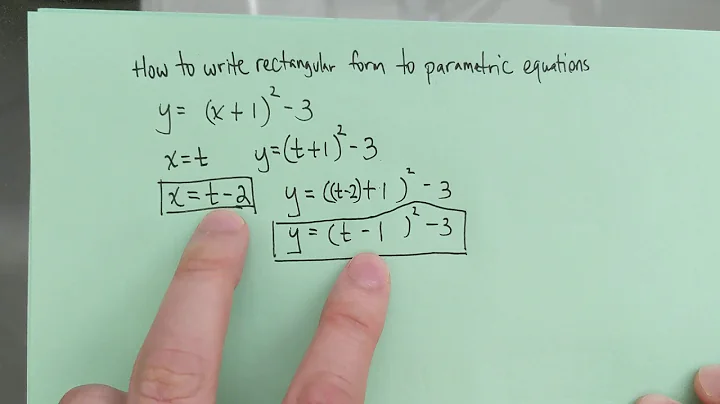 How to write rectangular form to parametric equations
y = (x+1)² - 3
x=t y=(t+1)² - 3
x = t - 2 y = ((t-2)+1)² - 3
y = (t - 1)² - 3